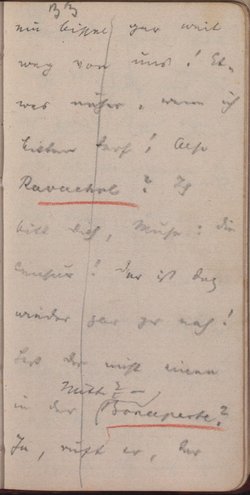 ein bissel gar weit
weg von uns! Et-
was näher, wenn ich
bitten darf! Also
Ravachol? Ich
bitt dich, Muse: die
Censur! Das ist doch
wieder gar zu nah!
der nicht einen
in der Mitte –
Bonaparte?
Ja, ruft er, der